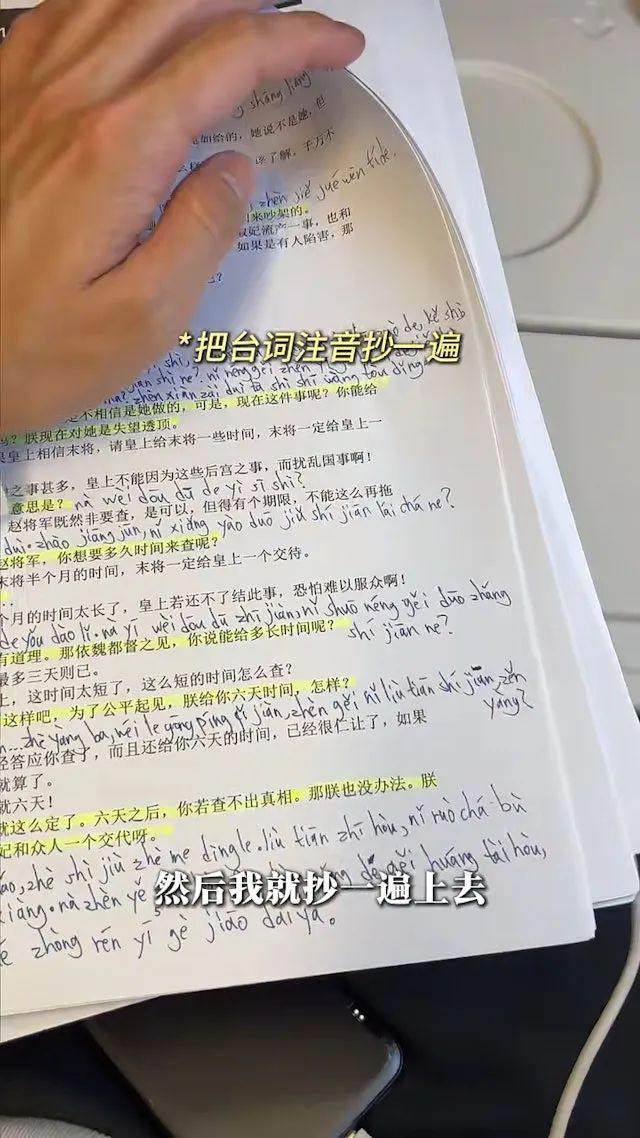 shāng liang
如给的，她说不是她，但
该了解，千万不
zhēn jiě jué wèn tí de.
来吵架的。
妃流产一事，也和
如果是有人陷害，那
*把台词注音抄一遍
shì ne? nǐ néng gěi zhèn
zhèn xiàn zài duì tā shì shī wàng tòu dǐng
不相信是她做的，可是，现在这件事呢？你能给
吗？朕现在对她是失望透顶。
果皇上相信末将，请皇上给末将一些时间，末将一定给皇上一
之事甚多，皇上不能因为这些后宫之事，而扰乱国事啊！
意思是？ nà wèi dou dū de yì sī shì?
赵将军既然非要查，是可以，但得有个期限，不能这么再拖
dài. zhào jiāng jūn, nǐ xiǎng yào duō jiǔ shí jiān lái chá ne?
赵将军，你想要多久时间来查呢？
末将半个月的时间，末将一定给皇上一个交待。
个月的时间太长了，皇上若还不了结此事，恐怕难以服众啊！
de yǒu dào lǐ. nà yī wèi dou dū zhī jiàn, nǐ shuō néng gěi duō zhǎng
有道理。那依魏都督之见，你说能给多长时间呢？ shí jiān ne?
最多三天则已。
上，这时间太短了，这么短的时间怎么查？
这样吧，为了公平起见，朕给你六天时间，怎样？
zhè yàng ba, wèi le gōng píng qǐ jiàn, zhèn gěi nǐ liù tiān shí jiān zěn
yàng?
经答应你查了，而且还给你六天的时间，已经很仁让了，如果
就算了。
就六天！
就这么定了。六天之后，你若查不出真相。那朕也没办法。朕
妃和众人一个交代呀。
zhè shì jiù zhè me dìng le. liù tiān zhī hòu, nǐ ruò chá bù
xiàng. nà zhèn yě
dé gěi huáng tài hòu,
然后我就抄一遍上去
zhòng rén yī gè jiāo dài ya.